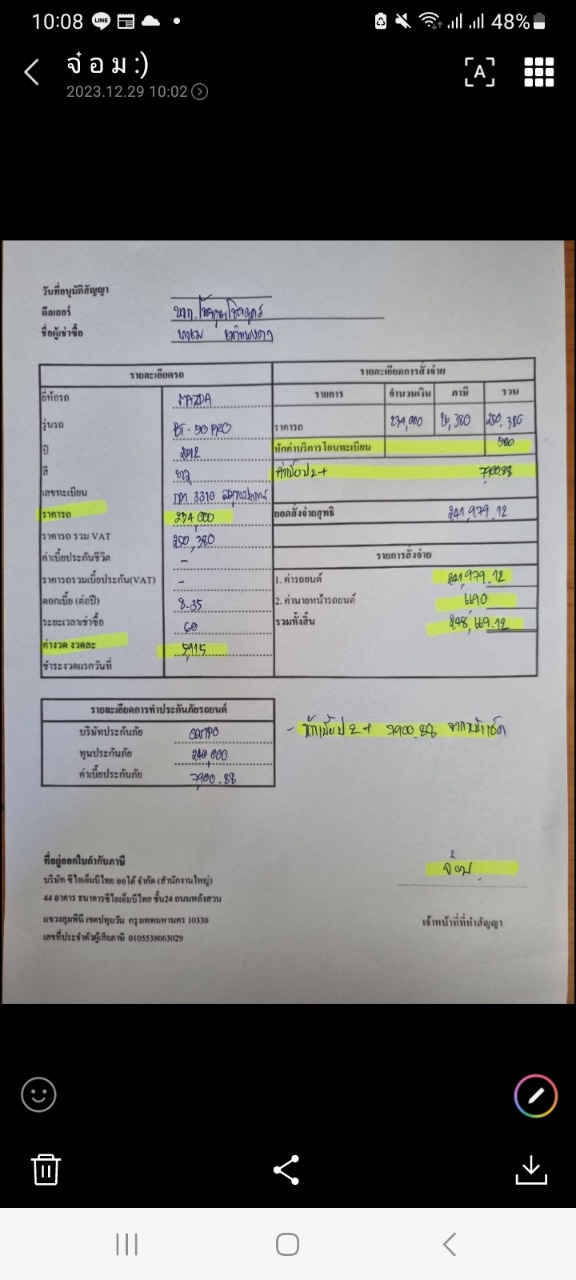 10:08
48%
จ๋อม:)
2023.12.29 10:02
วันที่อนุมัติสัญญา
ดีลเลอร์
ชื่อผู้เช่าซื้อ
รายละเอียดรถ
ยี่ห้อรถ MAZDA
รุ่นรถ BT-50 PRO
ปี 2012
สี
เลขทะเบียน 3310
ราคารถ 234,000
ราคารถ รวม VAT 250,380
ค่าเบี้ยประกันชีวิต -
ราคารถรวมเบี้ยประกัน(VAT) -
ดอกเบี้ย (ต่อปี) 8.35
ระยะเวลาเช่าซื้อ 60
ค่างวด งวดละ 5,915
ชำระงวดแรกวันที่
รายละเอียดการสั่งจ่าย
รายการ จำนวนเงิน ภาษี รวม
ราคารถ 234,000 16,380 250,380
หักค่าบริการโอนทะเบียน 500
ค่าเบี้ย ป 2+ 7,900.88
ยอดสั่งจ่ายสุทธิ 241,979.12
รายการสั่งจ่าย
1. ค่ารถยนต์ 241,979.12
2. ค่านายหน้ารถยนต์ 6,690
รวมทั้งสิ้น 248,669.12
รายละเอียดการทำประกันภัยรถยนต์
บริษัทประกันภัย
ทุนประกันภัย 240,000
ค่าเบี้ยประกันภัย 7,900.88
- หักเบี้ย ป 2+ 7,900.88 จากหน้าเช็ค
ที่อยู่ออกใบกำกับภาษี
บริษัท ซีไอเอ็มบีไทย ออโต้ จำกัด (สำนักงานใหญ่)
44 อาคาร ธนาคารซีไอเอ็มบีไทย ชั้น24 ถนนหลังสวน
แขวงลุมพินี เขตปทุมวัน กรุงเทพมหานคร 10330
เลขที่ประจำตัวผู้เสียภาษี 0105538063029
จ๋อม
เจ้าหน้าที่ที่ทำสัญญา